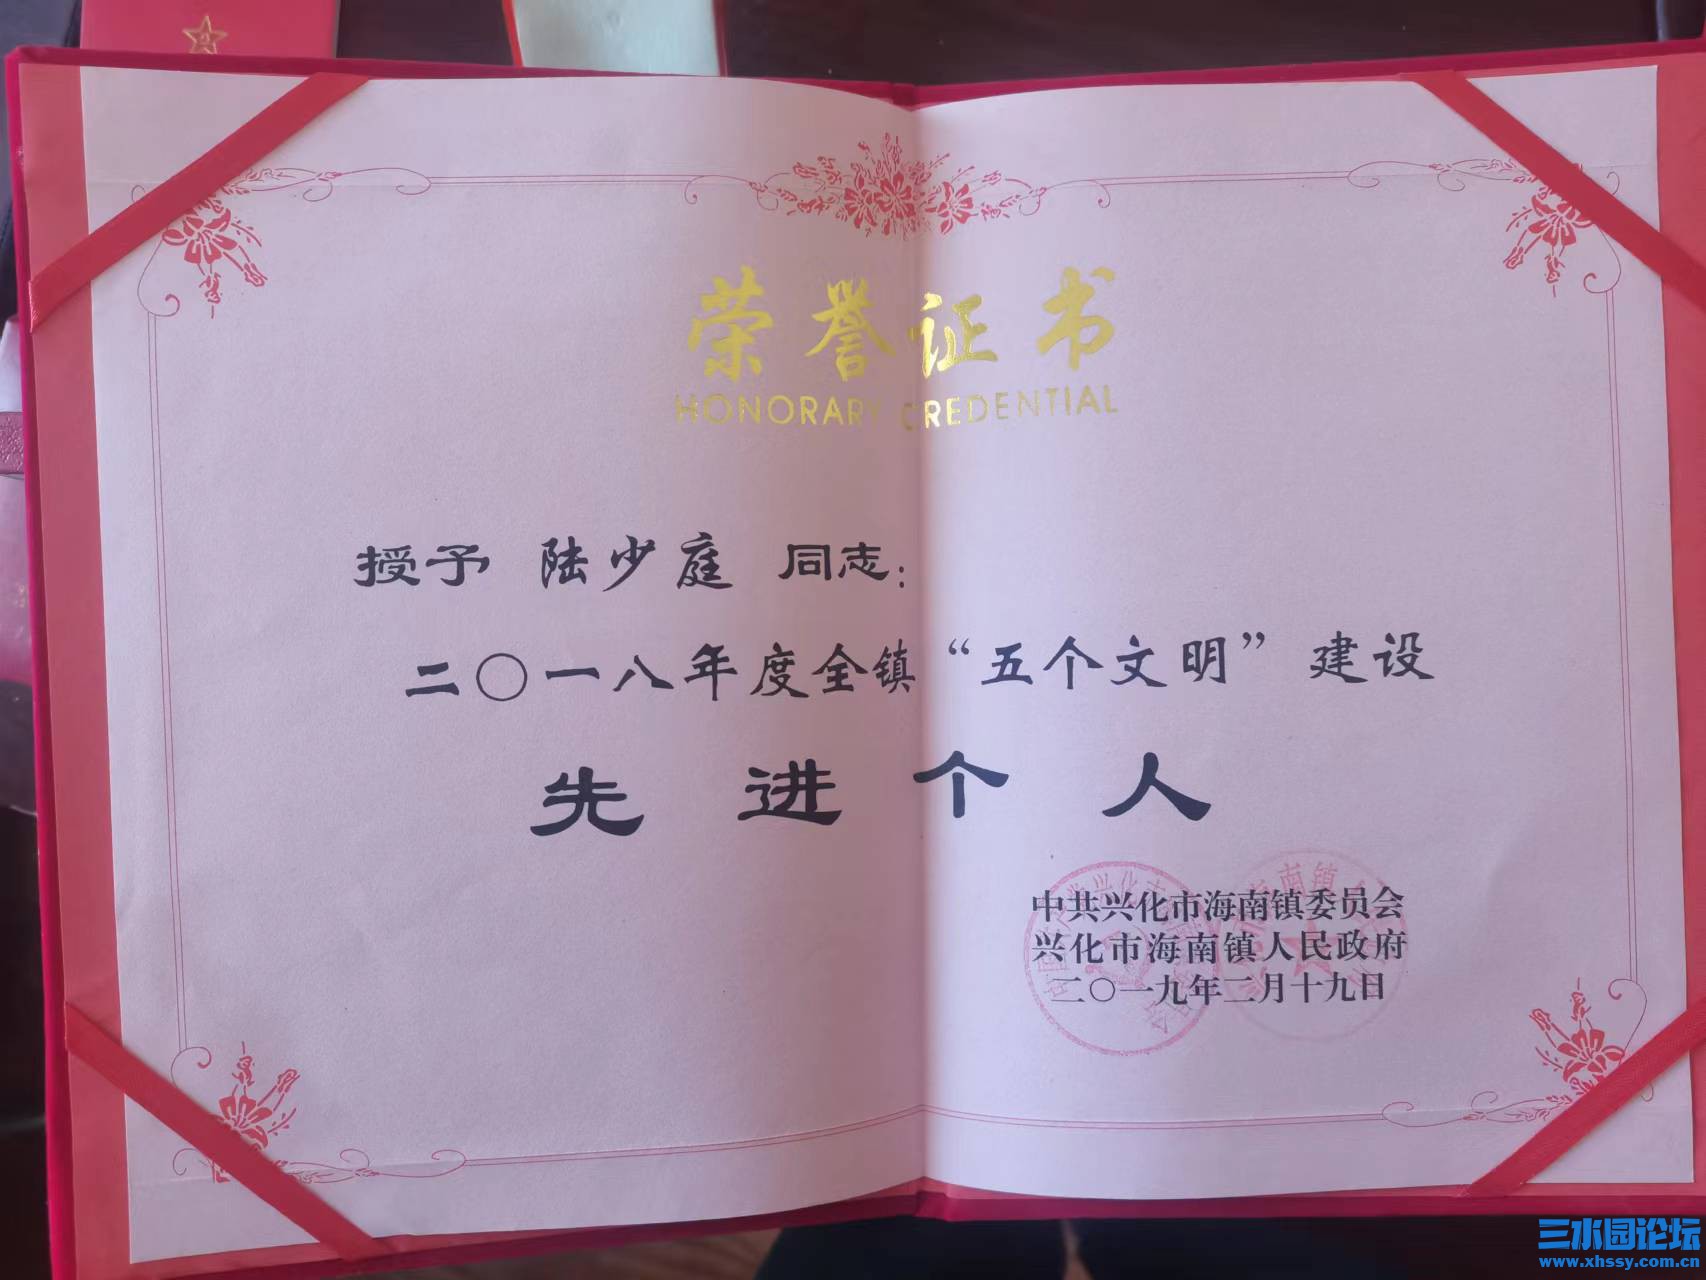 荣誉证书
HONORARY CREDENTIAL
授予 陆少庭 同志：
二〇一八年度全镇“五个文明”建设
先进个人
中共兴化市海南镇委员会
兴化市海南镇人民政府
二〇一九年二月十九日
三水园论坛
www.xhssy.com.cn